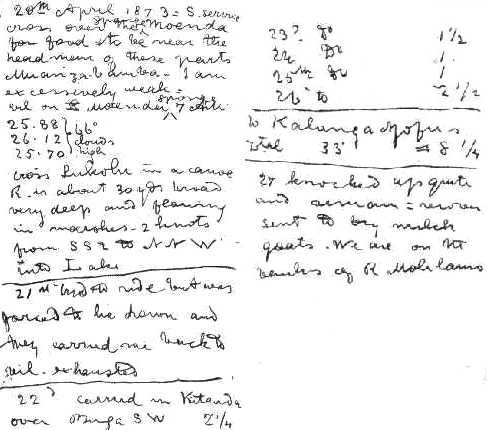 20th April 1873 = S. service
cross over the sponge Moenda
for food & to be near the
headman of these parts
Moanzabamba - I am
excessively weak =
vil on Moenda sponge 7 A M
25.88 } 66°
26.12 } clouds
25.70 } high
cross Lukolu in a canoe
R. is about 30 yds broad
very deep and flowing
in marshes - 2 knots
from SSE to NNW
into Lake
21st tryed to ride but was
forced to lie down and
they carried me back to
vil. exhausted
22d carried in Kitanda
over Buga SW 2 1/4
23d Do 1 1/2
24 Do 1
25th Do 1
26 to 2 1/2
to Kalunganjofus
total 33 = 8 1/4
27 knocked up quite
and remain = recover
sent to buy milch
goats. We are on the
banks of R Molilamo